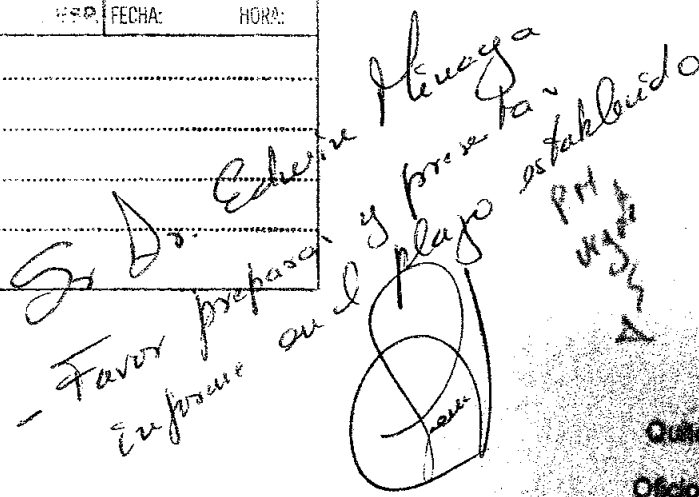 FECHA: HORA:
Sr Dr. Edwin Minaya
- Favor preparar y presentar
informe en el plazo establecido
PM